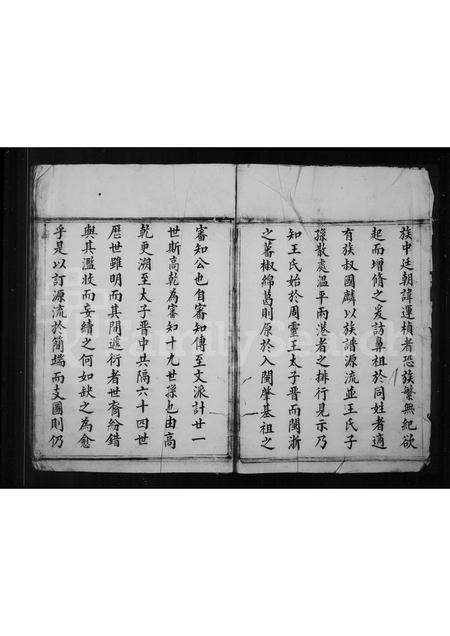 族中廷朝諱運楨者恐族繁無紀欲
起而增脩之爰訪鼻祖於同姓者適
有族叔國麟以族譜源流並王氏子
孫散處溫平兩港者之排行見示乃
知王氏始於周靈王太子晋而閩浙
之蕃椒綿葛則原於入閩肇基祖之
審知公也自審知傳至文派計廿一
世斯高乾為審知十九世孫也由高
乾更溯至太子晋中共隔六十四世
歷世雖明而其間遞衍者世裔紛錯
與其濫收而妄續之何如缺之為愈
乎是以訂源流於簡端而支圖則仍